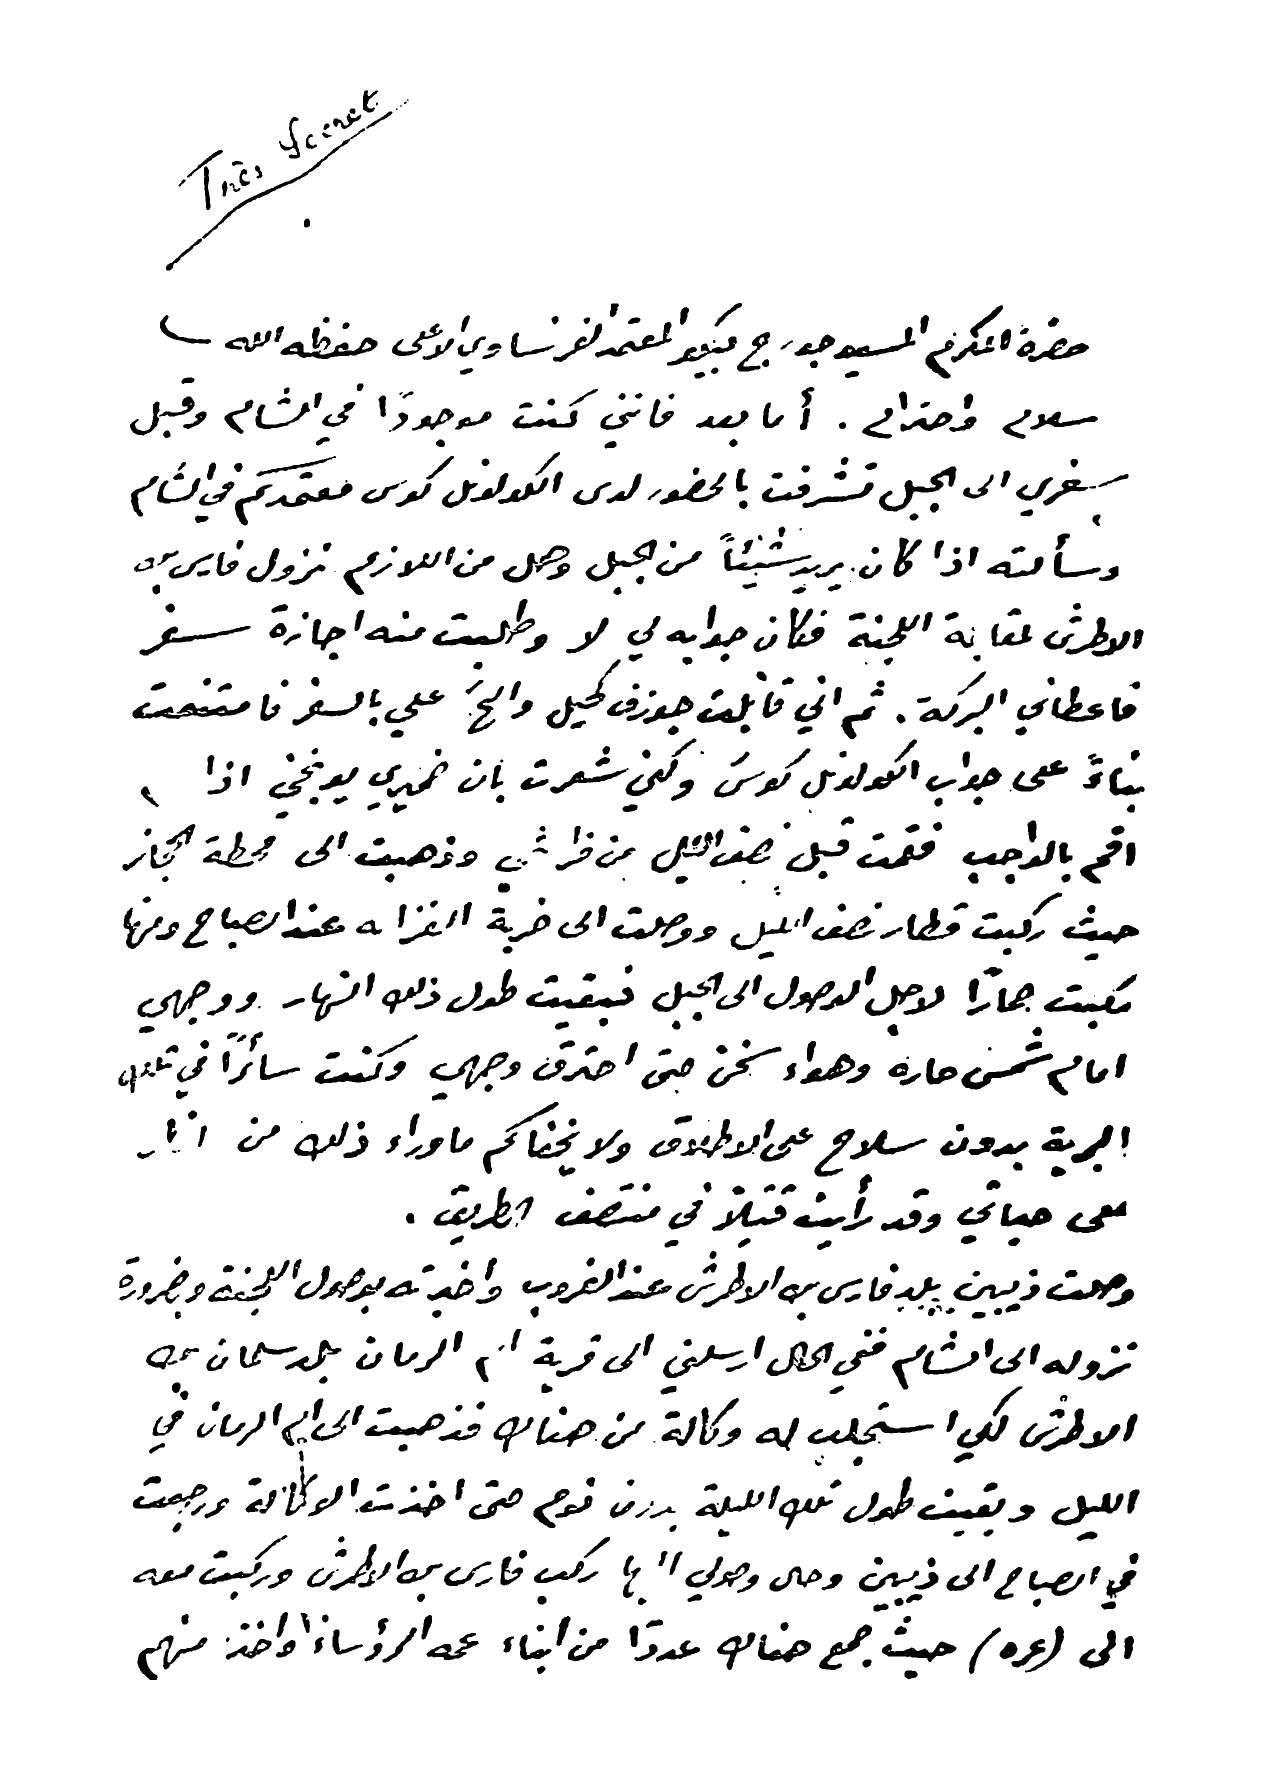 Très Secret
حضرة المكرم المسيو جورج بيكو المعتمد الفرنساوي الاعلى حفظه الله
سلام واحترام . أما بعد فانني كنت موجودًا في الشام وقبل
سفري الى الجبل تشرفت بالحضور لدى الكولونل كوس معتمدكم في الشام
وسألته اذا كان يريد شيئاً من الجبل وهل من اللازم نزول فارس بك
الاطرش لمقابلة اللجنة فكان جوابه لي لا وطلبت منه اجازة سفر
فاعطاني البركة . ثم اني قابلت جوزف كحيل والحَّ علي بالسفر فامتنعت
بناءً على جواب الكولونل كوس ولكني شعرت بان ضميري يوبخني اذا
اقم بالواجب فقمت قبل نصف الليل من فراشي وذهبت الى محطة الحجاز
حيث ركبت قطار نصف الليل ووصلت الى خربة الغزاله عند الصباح ومنها
ركبت حمارًا لاجل الوصول الى الجبل فبقيت طول ذلك النهار ووجهي
امام شمس حاره وهواء سخن حتى احترق وجهي وكنت سائرًا في تلك
البرية بدون سلاح على الاطلاق ولا يخفاكم ما وراء ذلك من
على حياتي وقد رأيت قتيلاً في منتصف الطريق .
وصلت ذيبين بلد فارس بك الاطرش عند الغروب واخبرته بوصول اللجنة وبضرورة
نزوله الى الشام ففي الحال ارسلني الى قرية ام الرمان بلد سلمان بك
الاطرش لكي استجلب له وكالة من هناك فذهبت الى ام الرمان في
الليل وبقيت طول تلك الليلة بدون نوم حتى اخذت الوكالة ورجعت
في الصباح الى ذيبين وحال وصولي اليها ركب فارس بك الاطرش وركبت معه
الى (عره) حيث جمع هناك عددًا من ابناء عمه الرؤساء واخذ منهم